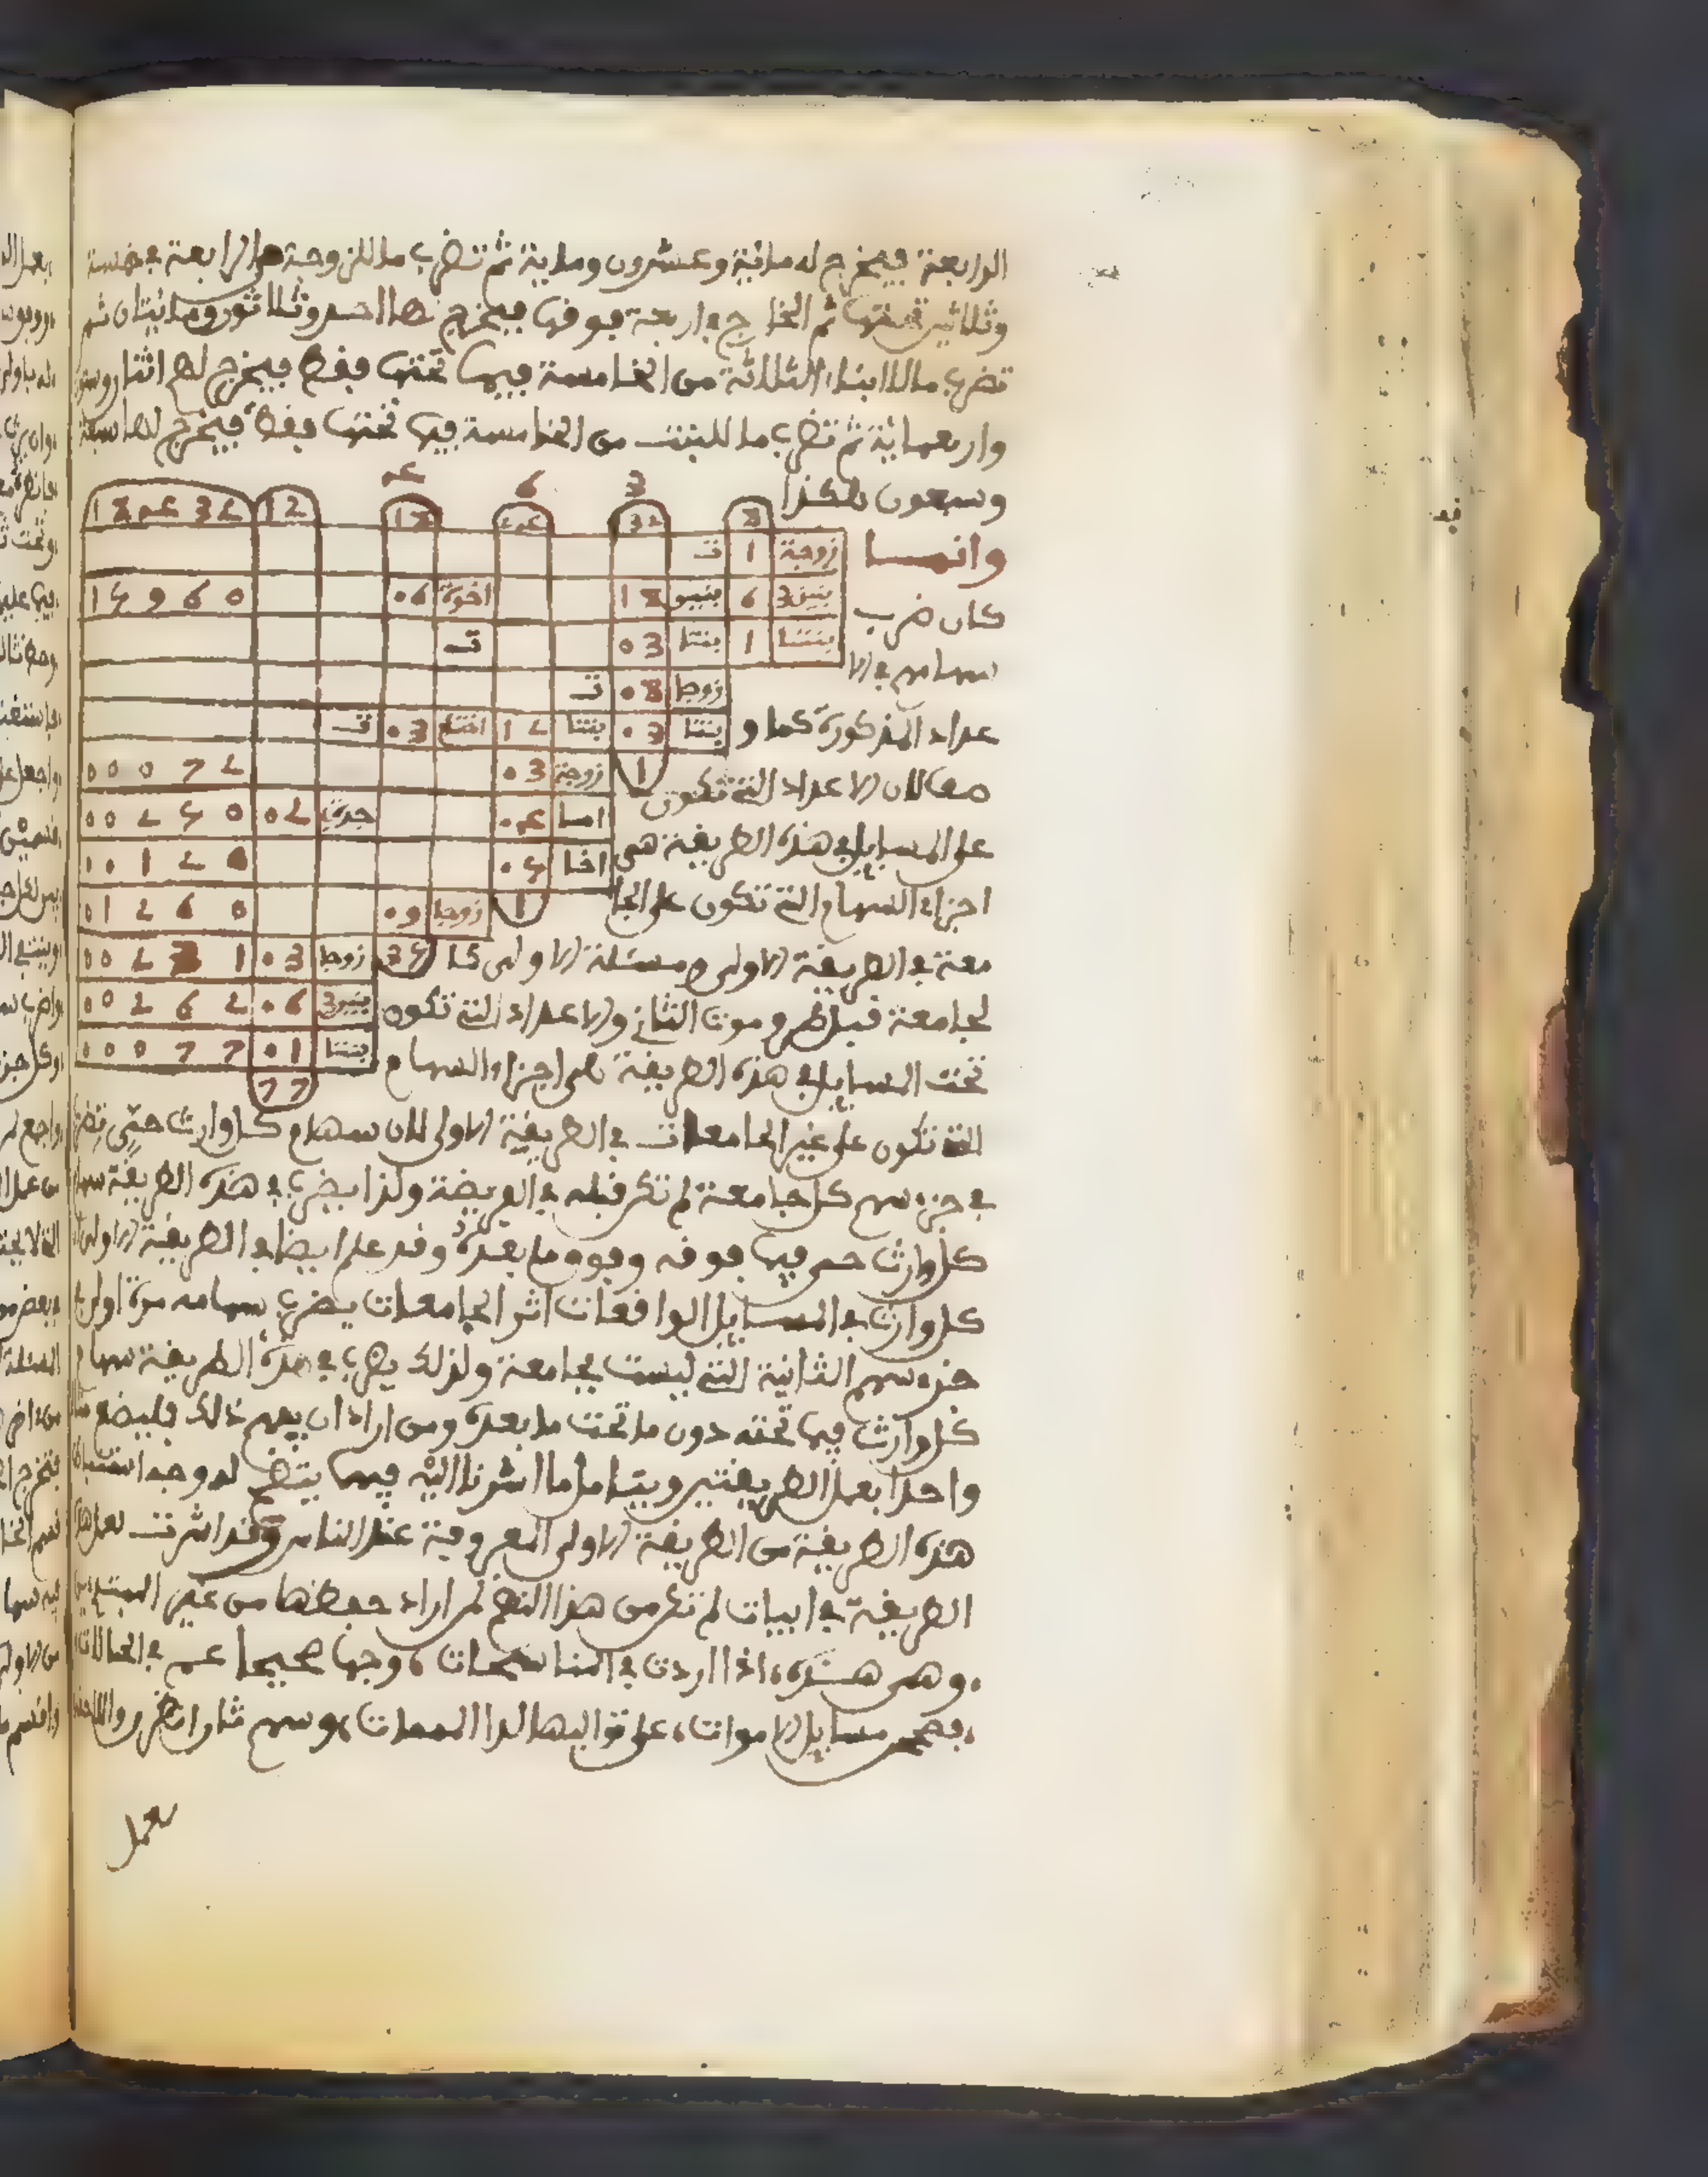 الرابعة فيخرج له مائية وعشرون ومائة ثم تضرب ما للزوجة من الرابعة في خمسة
وثلاثين تحتها ثم الخارج في اربعة فوقها فيخرج لها احد وثلاثون ومائتان ثم
تضرب ما للابناء الثلاثة من الخامسة فيما تحتها فقط فيخرج لهم اثنان وستون
واربعمائة ثم تضرب ما للبنت من الخامسة فيما تحتها فقط فيخرج لها سبعة
وسبعون هكذا
3 6 عم
8 32 18 12
زوجة 1 ت
بنين3 6 بنيو 18 اخوة 06 15960
بنتا 1 بنتا 03 ت
زوجا 08 ت
بنتا 03 بنتا 12 اختا 03 ت
1 زوجة 03 00072
اما جدة 02 00250
اخا 05 00120
1 زوجا 09 01260
35 زوجا 03 00231
بنين3 06 00262
بنتا 01 00077
77
وانما
كان ضرب
سهامهم في الا
عداد المذكورة كما و
صف لان الاعداد التي تكون
على المسايل في هذه الطريقة هي
اجزاء السهام التي تكون على الجا
معة في الطريقة الاولى ومسئلة الاولى كا
لجامعة قبل طرو موت الثاني والاعداد التي تكون
تحت المسايل في هذه الطريقة هي اجزاء السهام
التي تكون على غير الجامعات في الطريقة الاولى لان سهام كل وارث حتى تضرب
في جزء سهم كل جامعة لم تكن قبله في الفريضة وكذا يضرب في هذه الطريقة سهام
كل وارث حي فيما فوقه وفوق ما بعده وقد علم ايضا في الطريقة الاولى ان
كل وارث في المسايل الواقعات اثر الجامعات يضرب سهامه مرة اولى في
جزء سهم الثانية التي ليست بجامعة ولذلك يضرب في هذه الطريقة سهام
كل وارث فيما تحته دون ما تحت ما بعده ومن اراد ان يفهم ذلك فليضع
واحدا بعمل الطريقتين ويتامل ما اشرنا اليه فيهما يتضح له وجه استنباط
هذه الطريقة من الطريقة الاولى المعروفة عند الناس وقد اشرت لعمل هذه
الطريقة في ابيات لم تكن من هذا النظم لمن اراد حفظها من غير المبتدئين
وهي هذه، اذا اردت في المناسخات، وجها صحيحا عم في الحالات
فصحح مسايل الاموات، على تواليها لدا الممات، وسهم ثان انظرن
بعمل